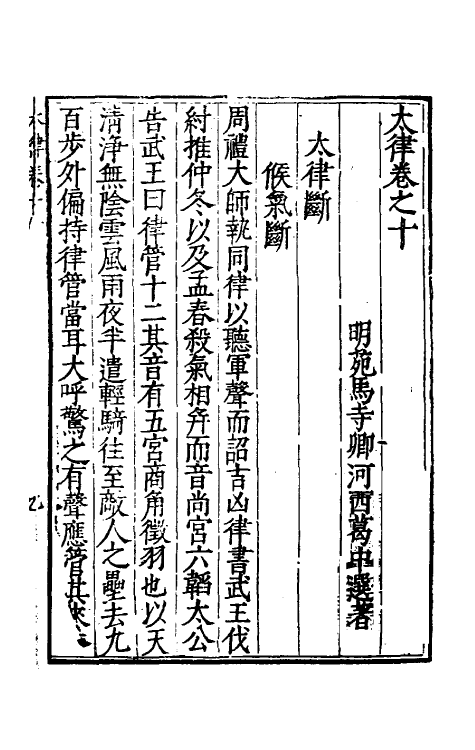 太律卷之十
明苑馬寺卿河西葛中選著
太律斷
候氣斷
周禮大師執同律以聽軍聲而詔吉凶律書武王伐
紂推仲冬以及孟春殺氣相并而音尚宮六韜太公
告武王曰律管十二其音有五宮商角徵羽也以天
清淨無陰雲風雨夜半遣輕騎往至敵人之壘去九
百步外偏持律管當耳大呼驚之有聲應管其來
太律卷十